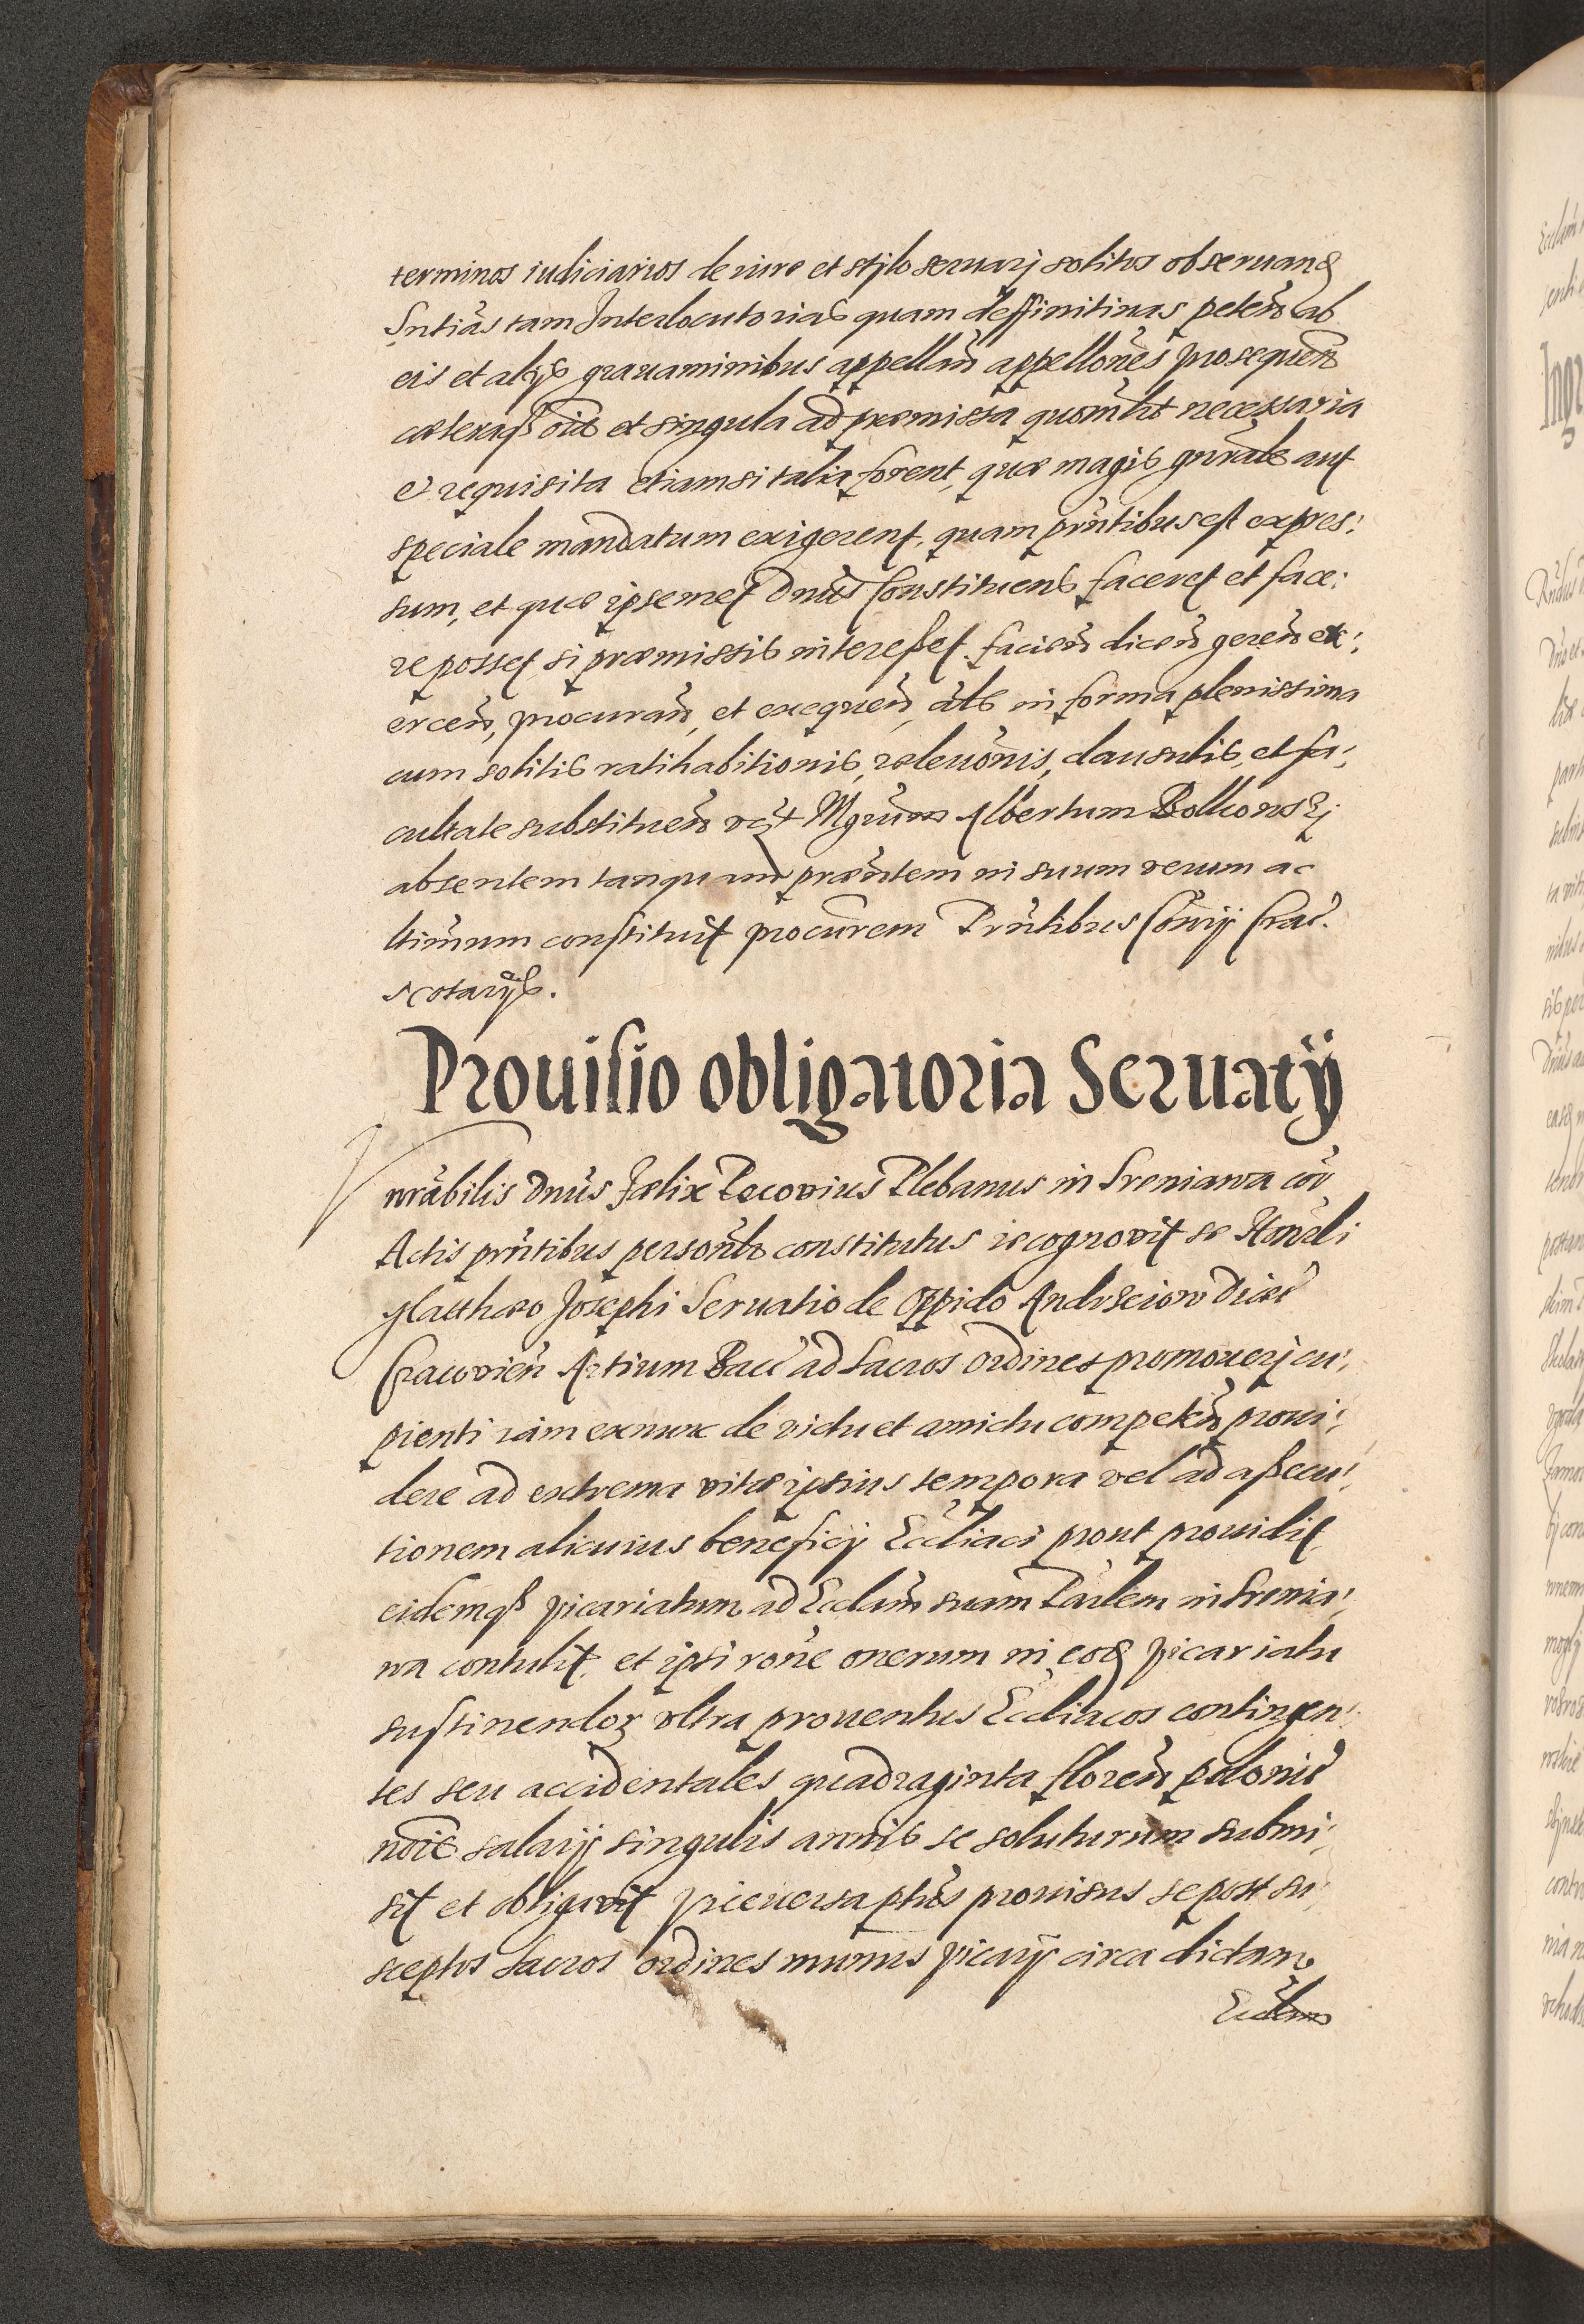 terminos iudiciarios de iure et stylo seruarj solitos obseruand
Sntias tam Interlocutorias quam deffinitiuas peten ab
eis et alijs grauaminibus appellan appellones prosequen
caeteraq oia et singula ad praemissa quomlibt necessaria
et requisita etiamsi talia forent, quae magis gnrale aut
speciale mandatum exigerent, quam pnntibus est expres:
sum, et quae ipsemet Dnus Constituens faceret et face:
re posset si praemissis interesset facien dicen geren ex:
ercen, procuran, et exequen, als in forma plenissima
cum solitis ratihabitionis, releuonis, clausulis, et fa:
cultate substituen vczt Mgrum Albertum
absentem tanquam praentem in suum verum ac
ltimum constituit procurem Pnntibus Cony Crac.
Notarijs.
Prouisio obligatoria Seruatij
Vnrabilis Dnus Faelix Plebanus in Sreniawa cor
Actis pnntibus personlr constitutus recognovit se Honrli
Matthaeo Josephi Seruatio de Oppido Andrzeiow Dioec
Cracovien Artium Bacc ad sacros ordines promouerj cu:
pienti iam exnunc de victu et amictu competen proui:
dere ad extrema vitae ipsius tempora vel ad assecu:
tionem alicuius beneficij Eccliaci prout prouidit
eidemq vicariatum ad Ecclam suam Parlem in Srenia:
wa contulit, et ipsi rone onerum in eod vicariatu
sustinendoꝝ vltra prouentus Eccliacos contingen:
tes seu accidentales quadraginta floren polonic
noie salarij singulis annis se soluturum submi:
sit et obligavit viceuersa phus prouisus se post su:
sceptos sacros ordines munus vicarij circa dictam
Ecclam